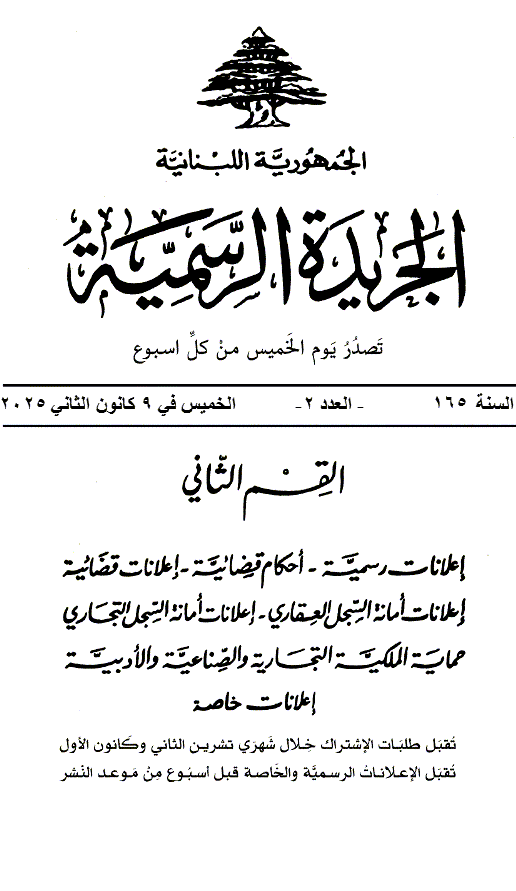 الجُمهُوريَّة اللبْنانيَّة
الجَريدَة الرسَّمِيَّة
تَصدُرُ يَوم الخَميس منْ كلِّ اسبوع
السنة ١٦٥ - العدد ٢- الخميس في ٩ كانون الثاني ٢٠٢٥
القِسْم الثّاني
إعلانات رسميَّة - أحكام قضائيَّة - إعلانات قضائية
إعلانات أمانة السِّجل العقاري - إعلانات أمانة السِّجل التجاري
حماية الملكيَّة التجارية والصِّناعيَّة والأدبيَّة
إعلانات خاصة
تُقبَل طلبَات الإشتراك خِلال شَهرَي تشرين الثاني وكَانون الأول
تُقبَل الإعلاناتُ الرسميَّة والخَاصة قبل أسبُوع مِنْ مَوعد النشر